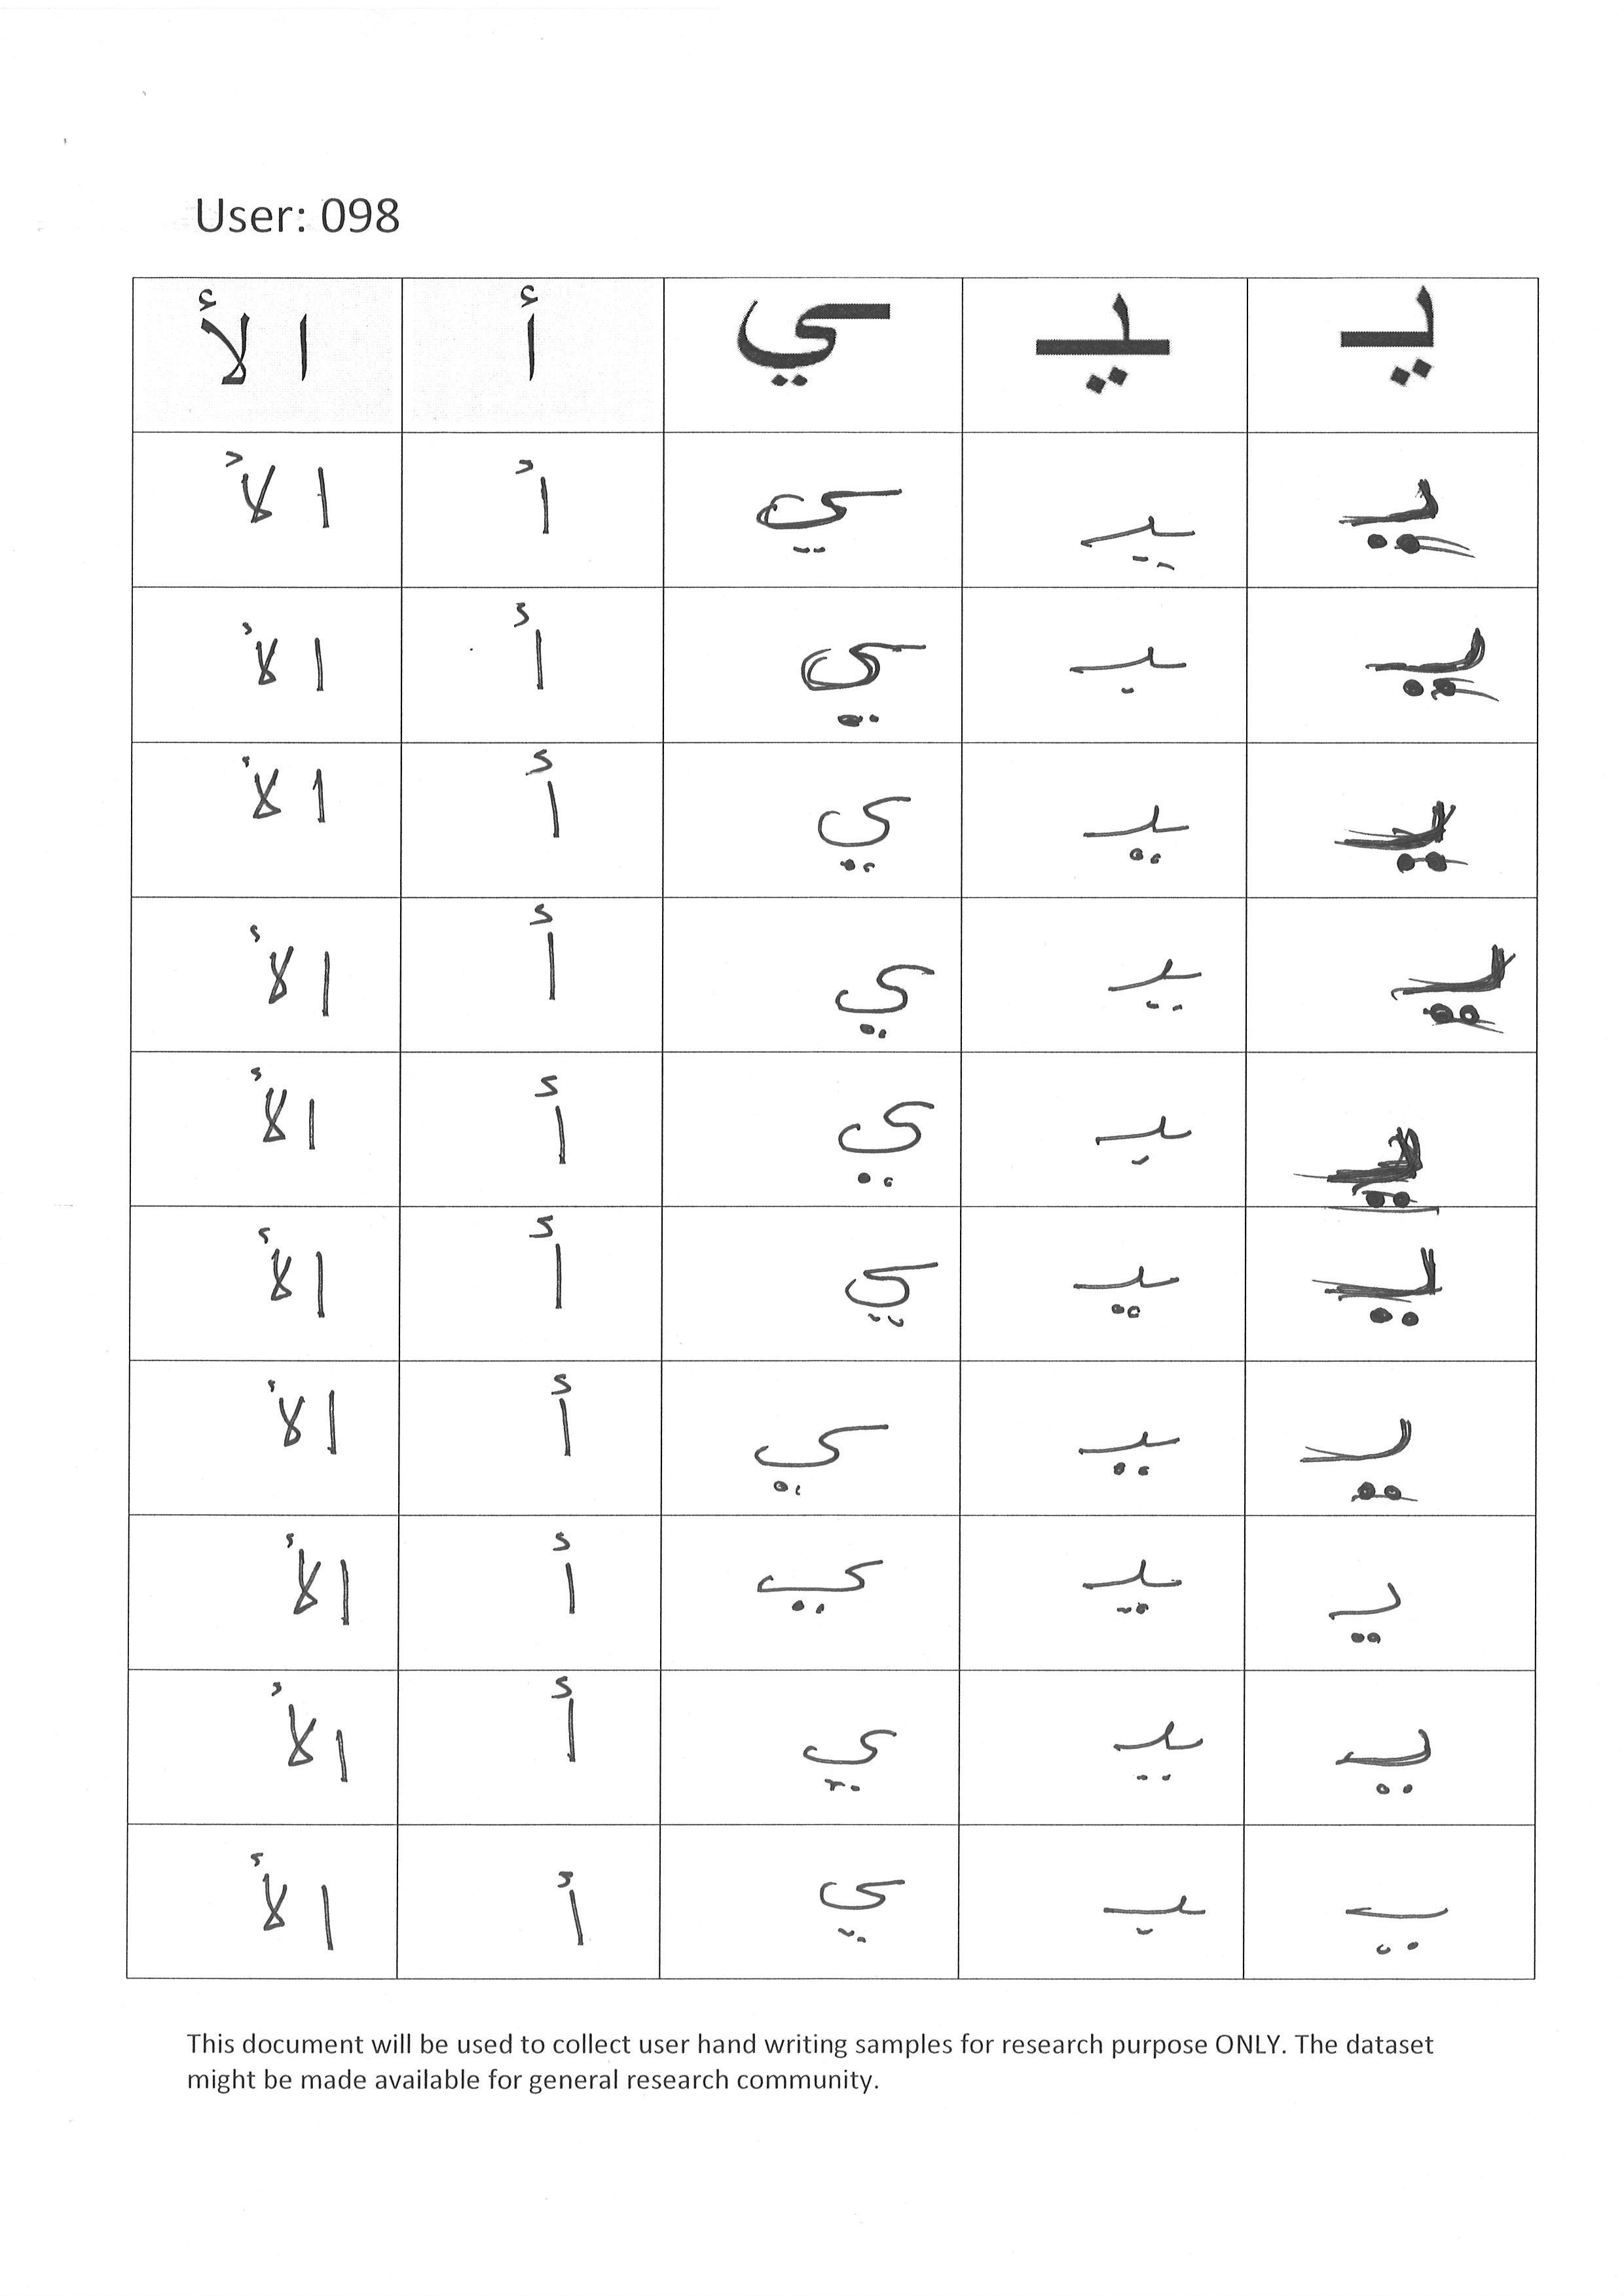 User: 098
يـ ـيـ ـي أ ا لأ
يـ ـيـ ـي أ ا لأ
يـ ـيـ ـي أ ا لأ
يـ ـيـ ـي أ ا لأ
يـ ـيـ ـي أ ا لأ
يـ ـيـ ـي أ ا لأ
يـ ـيـ ـي أ ا لأ
يـ ـيـ ـي أ ا لأ
يـ ـيـ ـي أ ا لأ
يـ ـيـ ـي أ ا لأ
يـ ـيـ ـي أ ا لأ
This document will be used to collect user hand writing samples for research purpose ONLY. The dataset
might be made available for general research community.